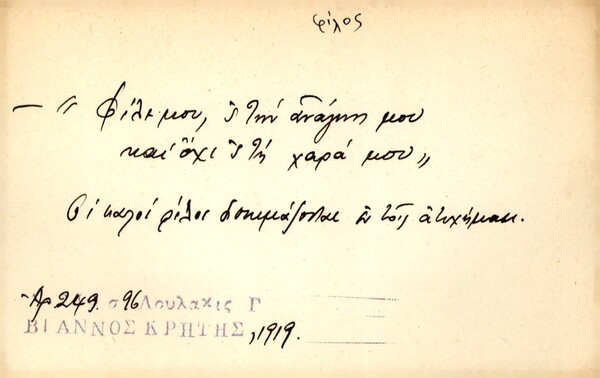 φίλος
— „ Φίλε μου, 'ς τὴν ἀνάγκη μου
καὶ ὄχι 'ς τὴ χαρά μου „
Οἱ καλοὶ φίλοι δοκιμάζονται ἐν τοῖς ἀτυχήμασι.
Ἀρ. 249. σ 96 Λουλακις Γ
ΒΙΑΝΝΟΣ ΚΡΗΤΗΣ, 1919.